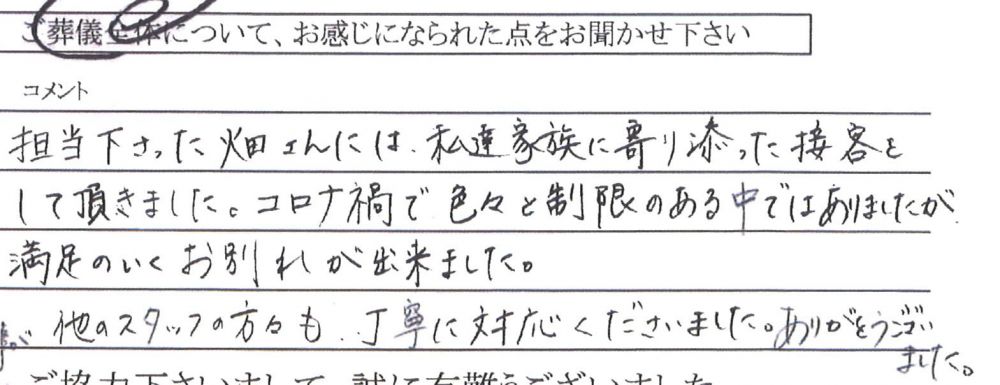 ご葬儀全体について、お感じになられた点をお聞かせ下さい
コメント
担当下さった畑さんには、私達家族に寄り添った接客を
して頂きました。コロナ禍で色々と制限のある中ではありましたが
満足のいくお別れが出来ました。
他のスタッフの方々も、丁寧に対応くださいました。ありがとうござい
ました。
ご協力下さいまして、誠に有難うございました